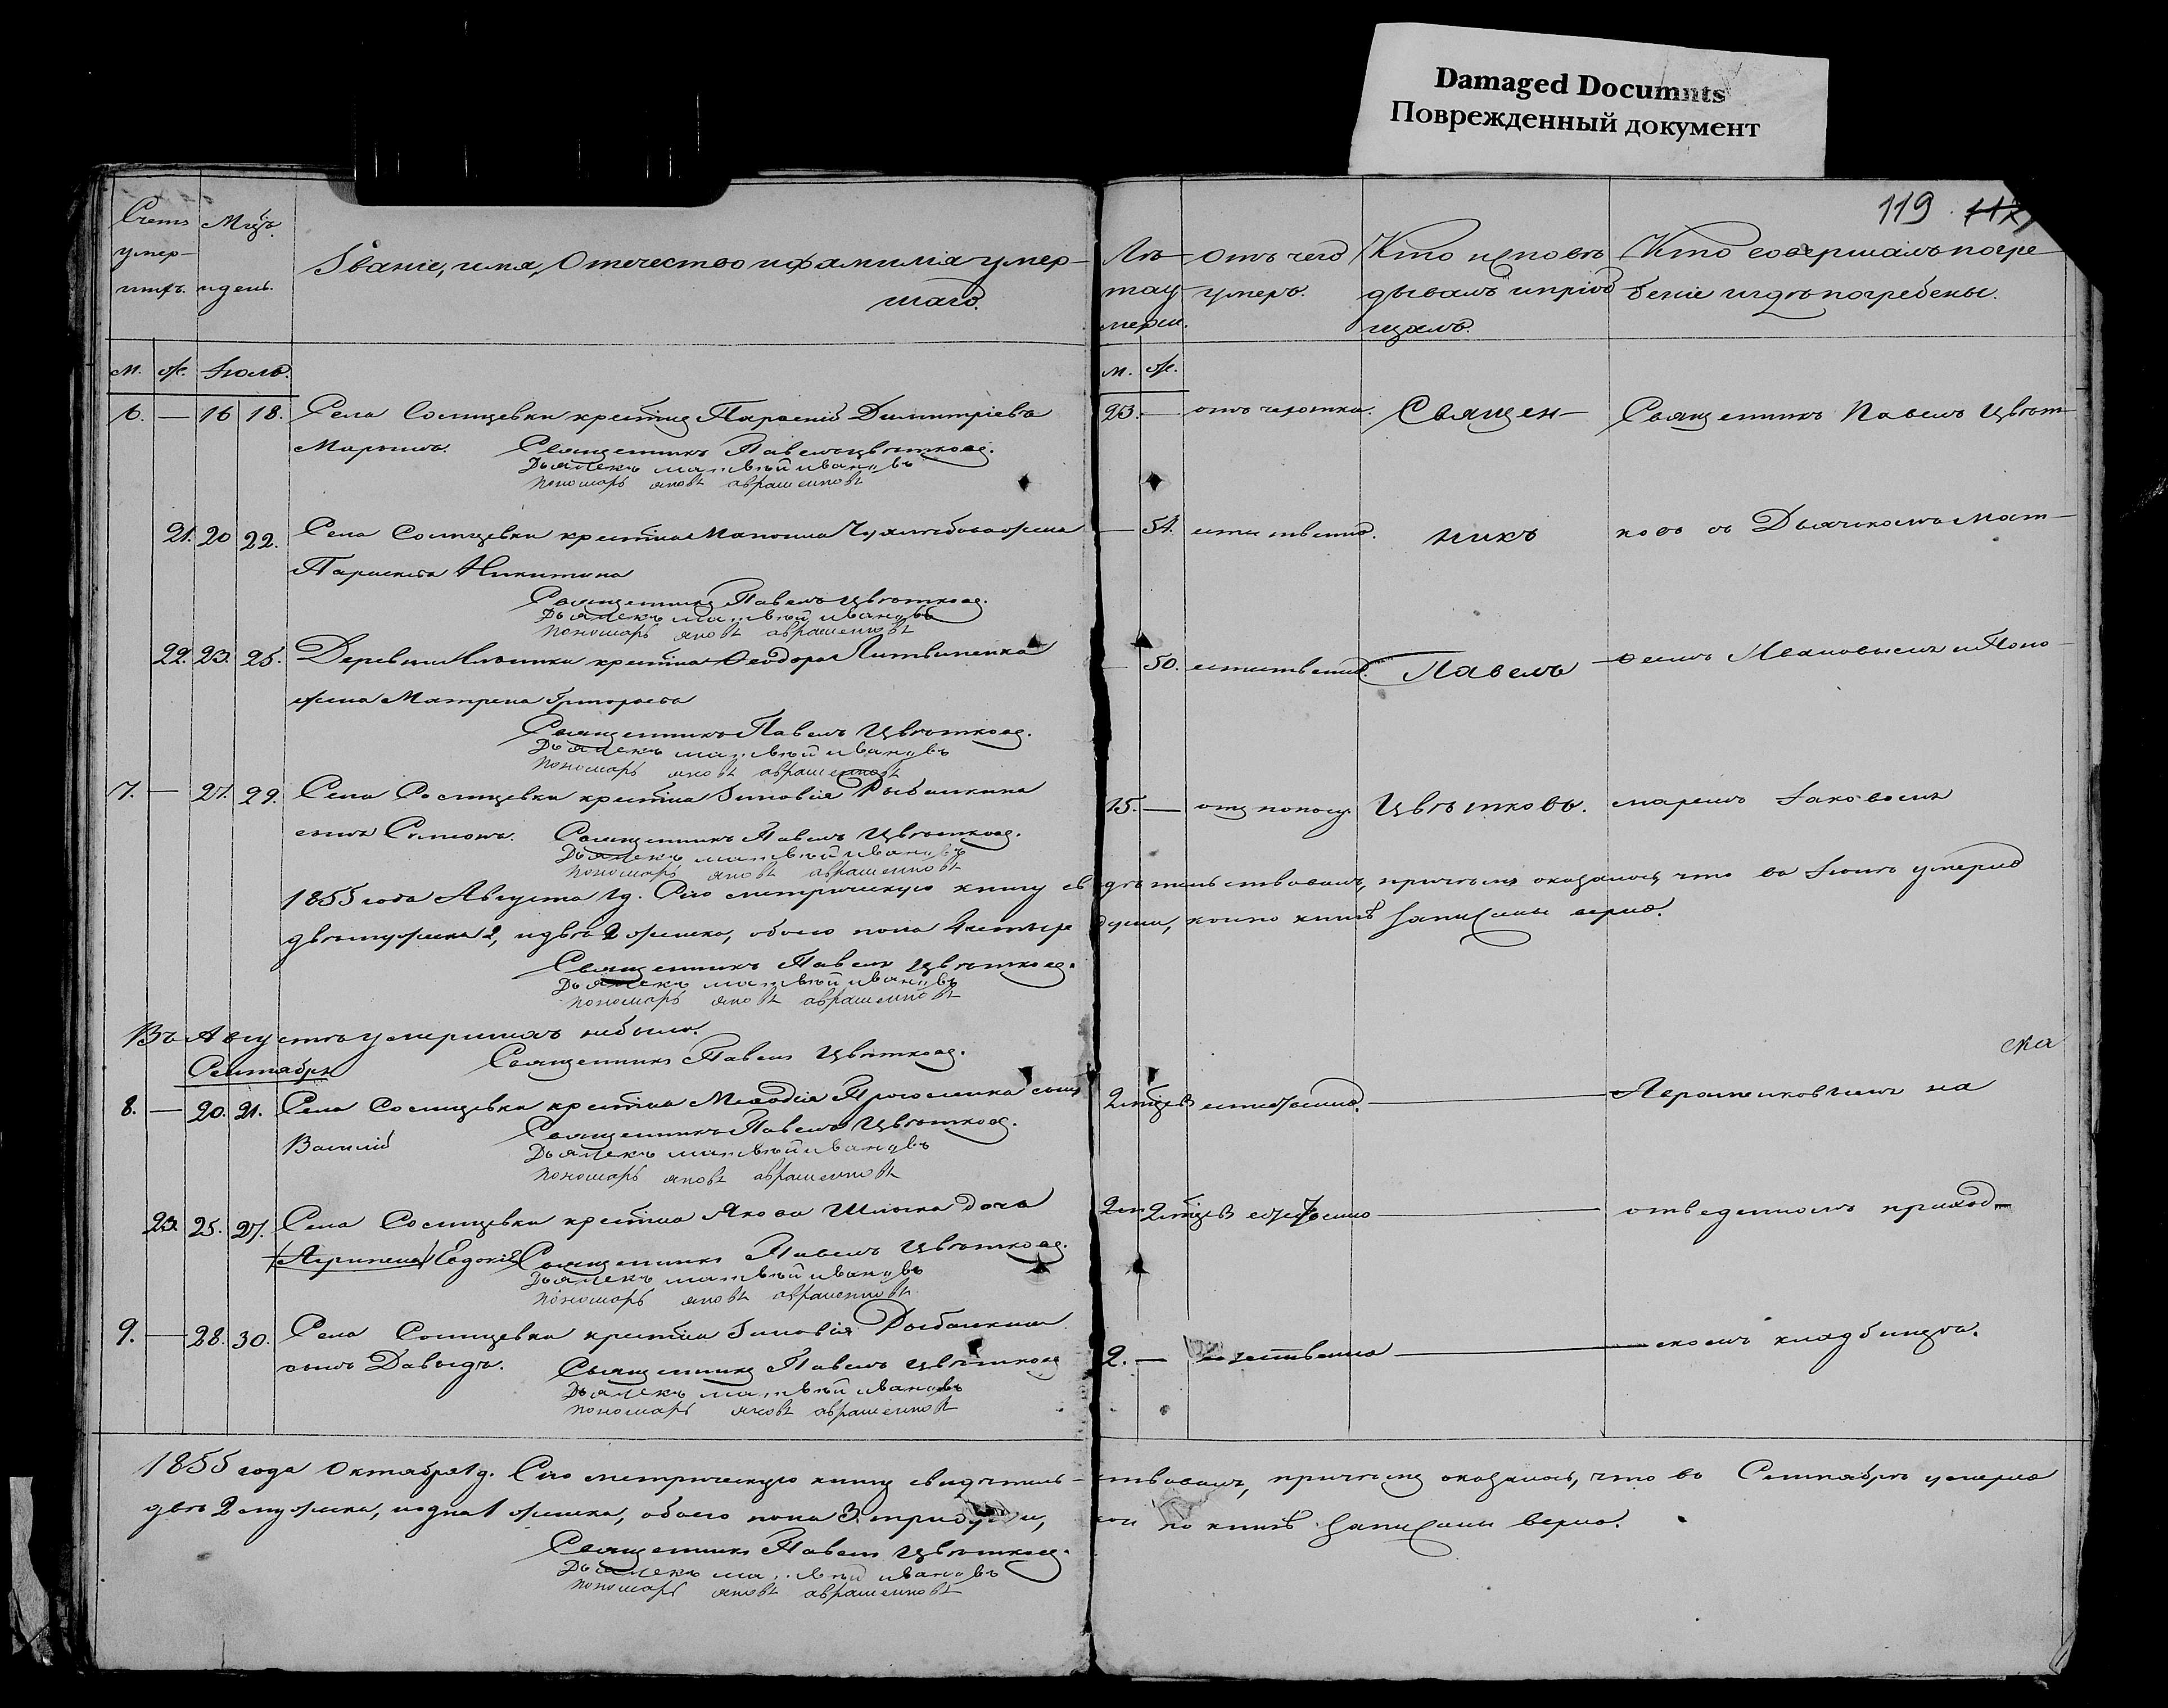 Damaged Documnts
Поврежденный документ
119. 117
Счетъ
умер-
шихъ.
М-цъ
и день.
Званіе, имя, Отечество и фамилія умер-
шаго.
Лѣ-
та у
мерш.
Отъ чего
умеръ.
Кто исповѣ
дывалъ и пріоб
щалъ.
Кто совершалъ погре
беніе и гдѣ погребены.
м. ж. Іюль.
м. ж.
6. — 16 18. Села Солнцевки крестиц Парфеній Димитріевъ
Марынъ. Священникъ Павелъ Цвѣтковъ.
Дьячекъ матвѣй ивановъ
пономарь яковъ аврашенковъ
23. — отъ чахотки. Священ- Священникъ Павелъ Цвѣт-
21. 20 22. Села Солнцевки жена
Параскева Никитина
Священникъ Павелъ Цвѣтковъ.
Дьячекъ матвѣй ивановъ
пономарь яковъ аврашенковъ
— 54. естествено. никъ ковъ съ Дьячкомъ Мат-
22. 23. 25. Деревни Ѳеодора Литвиненка
жена Матрена Григорьева
Священникъ Павелъ Цвѣтковъ.
Дьячекъ матвѣй ивановъ
пономарь яковъ аврашенковъ
— 50. естествено. Павелъ -веемъ Ивановымъ и Поно-
7. — 27. 29. Села Солнцевки Зиновія Рыбалкина
сынъ Симеонъ. Священникъ Павелъ Цвѣтковъ.
Дьячекъ матвѣй ивановъ
пономарь яковъ аврашенковъ
15. — отъ поносу. Цвѣтковъ. маремъ Іаковомъ
1855 года Августа 1 д. Сію метрическую книгу свидѣтельствовалъ, причемъ оказалось, что въ Іюлѣ умерло
два мужска 2, и два 2 женска, обоего пола 4 четыре души, кои по книгѣ записаны верно.
Священникъ Павелъ Цвѣтковъ.
Дьячекъ матвѣй ивановъ
пономарь яковъ аврашенковъ
Въ Августѣ умершихъ небыло.
Священникъ Павелъ Цвѣтковъ.
Сентябрь
8. — 20. 21. Села Солнцевки Меѳодія сынъ
Василій Священникъ Павелъ Цвѣтковъ.
Дьячекъ матвѣй ивановъ
пономарь яковъ аврашенковъ
ска
Аврашенковымъ на
23. 25. 27. Села Солнцевки Якова Шлыка дочь
Евдокія Священникъ Павелъ Цвѣтковъ.
Дьячекъ матвѣй ивановъ
пономарь яковъ аврашенковъ
отведенномъ приход-
9. — 28. 30. Села Солнцевки Зиновія Рыбалкина
сынъ Давыдъ. Священникъ Павелъ Цвѣтковъ
Дьячекъ матвѣй ивановъ
пономарь яковъ аврашенковъ
2. — естествено -скомъ кладбищѣ.
1855 года Октября 1 д. Сію метрическую книгу свидѣтель-ствовалъ, причемъ оказалось, что въ Сентябрѣ умерло
два 2 мужска, и одна 1 женска, обоего пола 3. три души, кои по книгѣ записаны верно.
Священникъ Павелъ Цвѣтковъ.
Дьячекъ матвѣй ивановъ
пономарь яковъ аврашенковъ